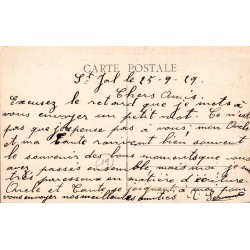 CARTE POSTALE
St Jal le 25-9-29
Chers Amis.
Excusez le retard que je mets à
vous envoyer un petit mot. Ce n'est
pas que je pense pas à vous, mon Oncle
et ma Tante ravivent bien souvent
le souvenir des bons moments que vous
avez passés ensemble mais moi je suis
très paresseux en matière d'écriture.
Oncle et Tante se joignent à moi pour
vous envoyer nos meilleures amitiés